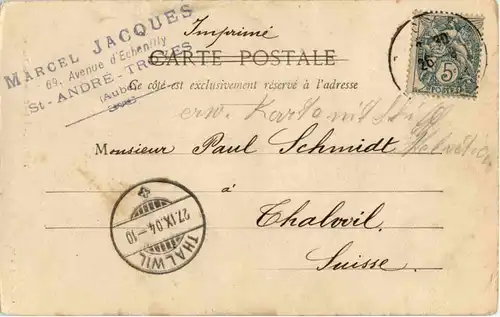 MARCEL JACQUES
69, Avenue d'Echenilly
St-ANDRÉ-TROYES
(Aube)
Imprimé
CARTE POSTALE
Ce côté est exclusivement réservé à l'adresse
5c
POSTES
erw. Karte mit
Monsieur Paul Schmidt
à
Thalwil
Suisse.
THALWIL
27.IX.04-10